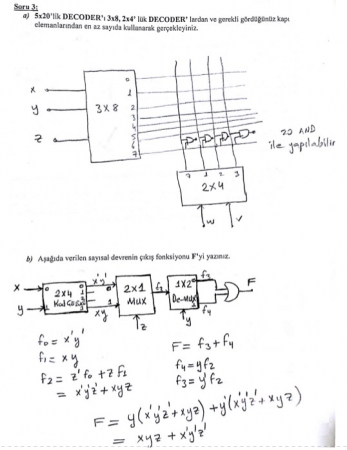 Soru 3:
a) 5x20'lik DECODER'ı 3x8, 2x4' lük DECODER' lardan ve gerekli gördüğünüz kapı
elemanlarından en az sayıda kullanarak gerçekleyiniz.
x
y
z
3x8
0
1
2
3
4
5
6
7
20 AND
ile yapılabilir
1 2 3
2x4
w
v
b) Aşağıda verilen sayısal devrenin çıkış fonksiyonu F'yi yazınız.
x
y
2x4
x'y'
xy
2x1
MUX
z
f2
1x2
De-MUX
y
f3
f4
F
f0 = x'y'
f1 = xy
f2 = z'f0 + zf1
= x'y'z' + xyz
F = f3 + f4
f4 = yf2
f3 = y'f2
F = y(x'y'z' + xyz) + y'(x'y'z' + xyz)
= xyz + x'y'z'